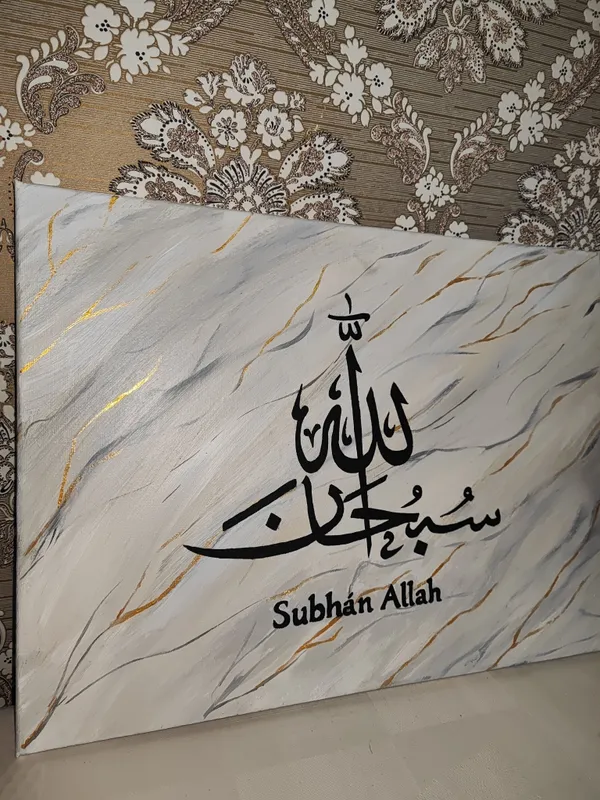 سُبحَانَ اللّٰه
Subhán Allah